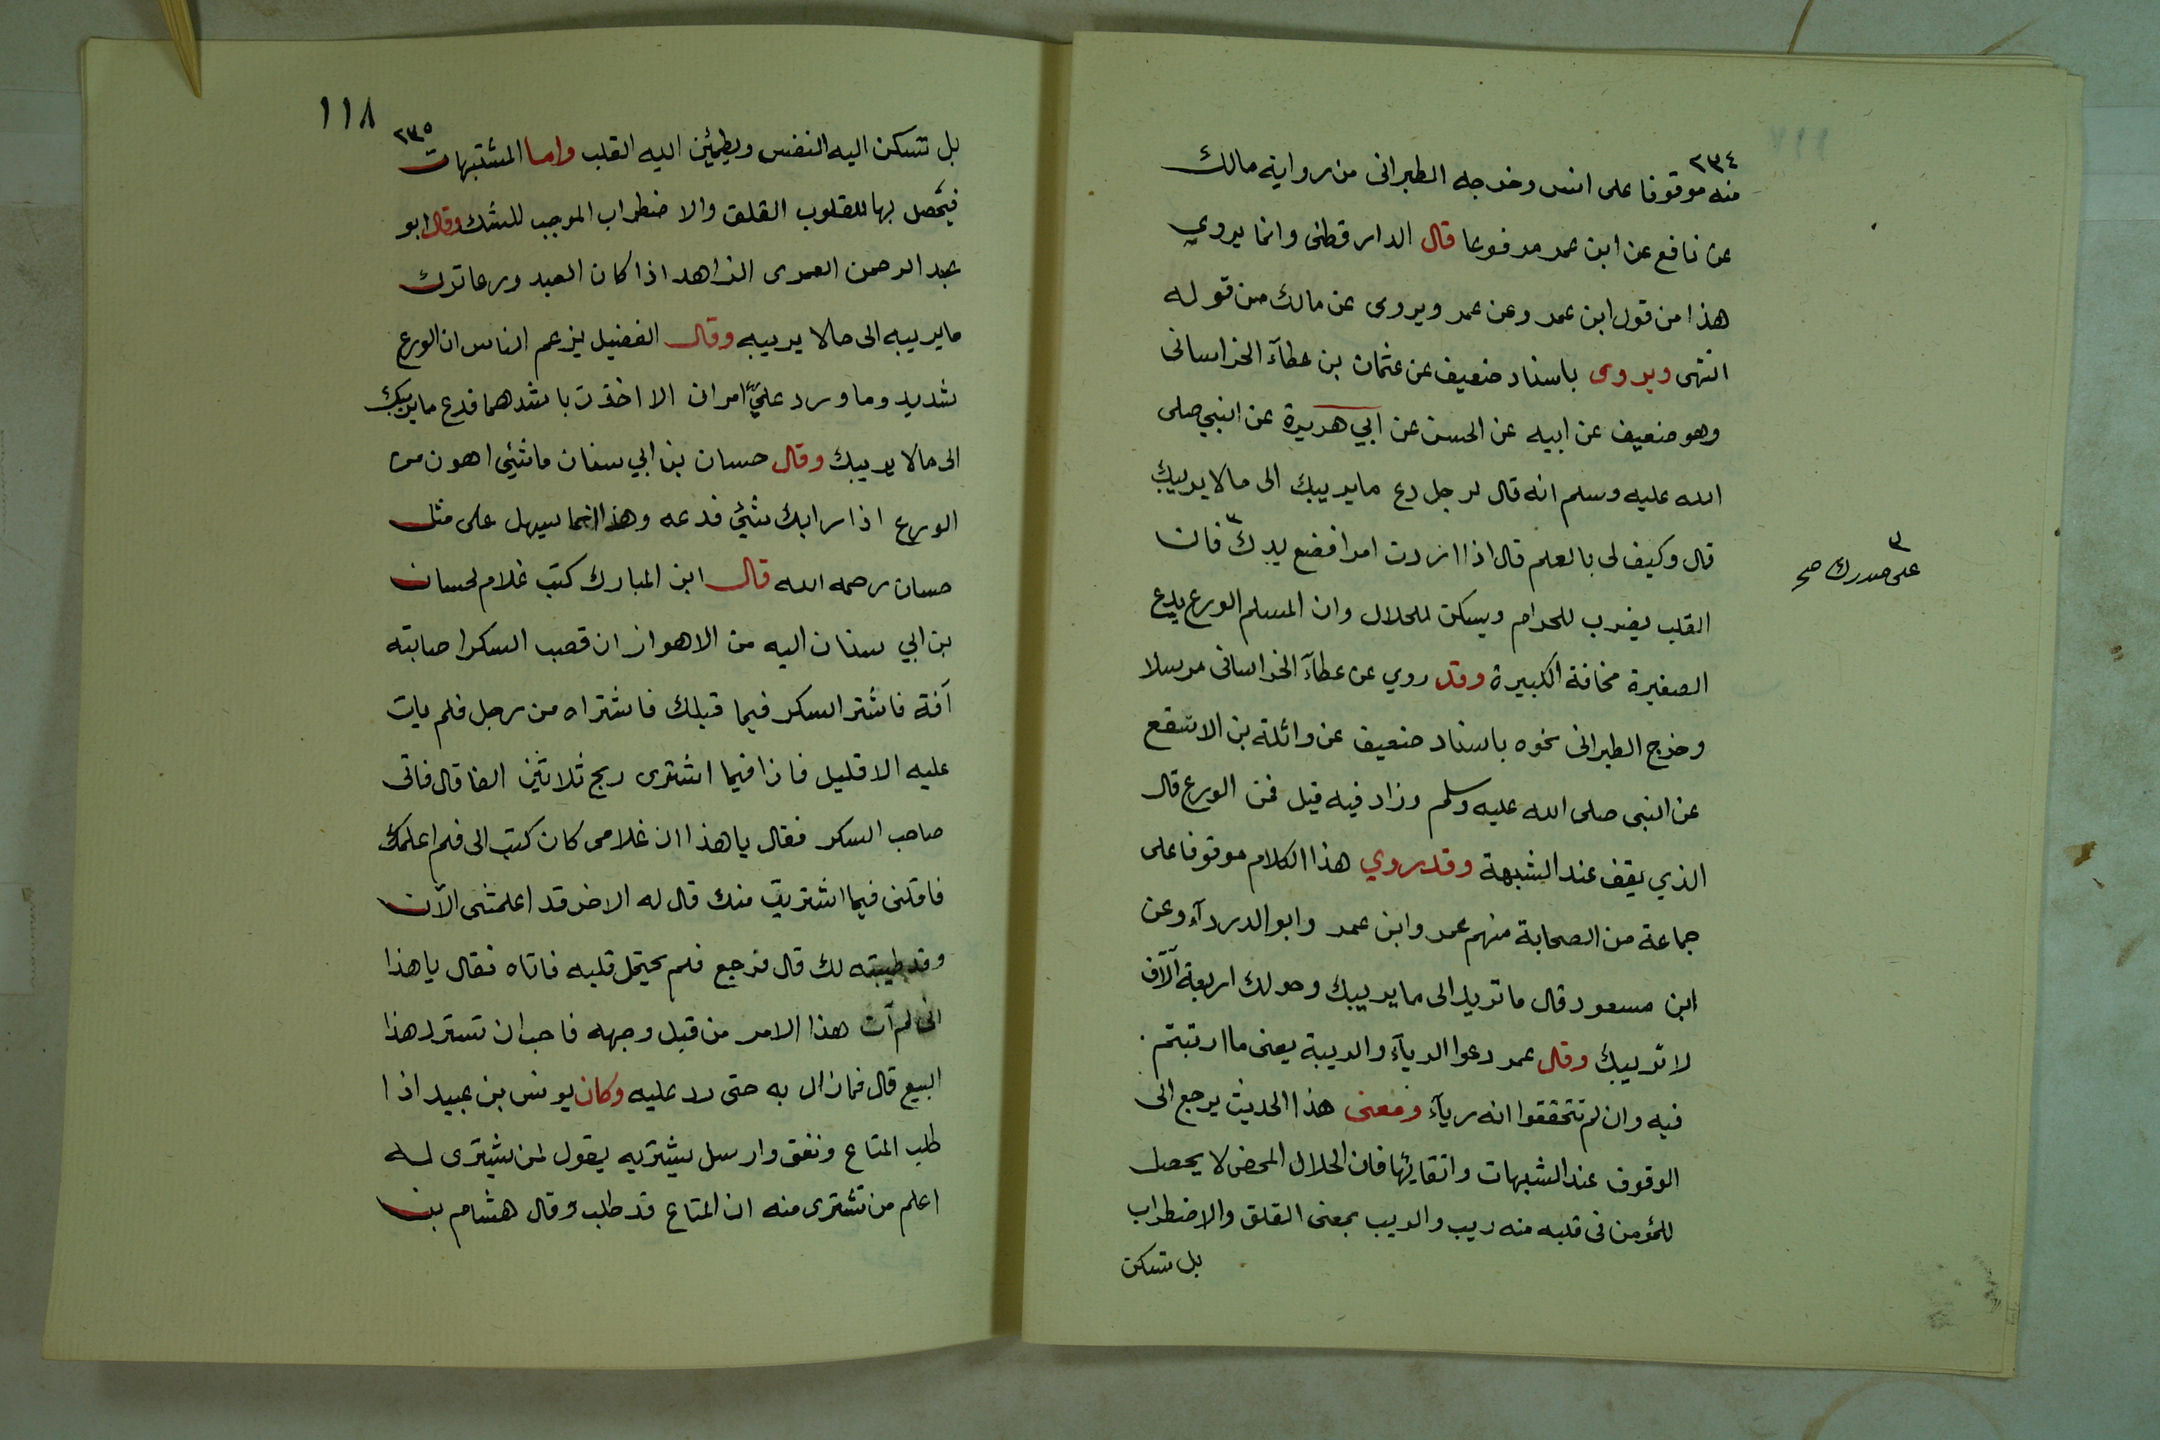 ٢٣٤
منه موقوفا على انس وخرجه الطبرانى من رواية مالك
عن نافع عن ابن عمر مرفوعا قال الدارقطنى وانما يروي
هذا من قول ابن عمر وعن عمر ويروى عن مالك من قوله
انتهى ويروى باسناد ضعيف عن عثمان بن عطآء الخراسانى
وهو ضعيف عن ابيه عن الحسن عن ابي هريرة عن النبي صلى
الله عليه وسلم انه قال لرجل دع ما يريبك الى ما لا يريبك
قال وكيف لى بالعلم قال اذا اردت امرا فضع يدك ٣ فان
٣
على صدرك صح
القلب يضرب للحرام ويسكن للحلال وان المسلم الورع يدع
الصغيرة مخافة الكبيرة وقد روي عن عطآء الخراسانى مرسلا
وخرج الطبرانى نحوه باسناد ضعيف عن واثلة بن الاسقع
عن النبى صلى الله عليه وسلم وزاد فيه قيل فمن الورع قال
الذي يقف عند الشبهة وقد روي هذا الكلام موقوفا على
جماعة من الصحابة منهم عمر وابن عمر وابو الدردآء وعن
ابن مسعود قال ما تريد الى ما يريبك وحولك اربعة آلآف
لا تريبك وقال عمر دعوا الريآء والريبة يعنى ما ارتبتم
فيه وان لم تتحققوا انه ريآء ومعنى هذا الحديث يرجع الى
الوقوف عند الشبهات واتقائها فان الحلال المحض لا يحصل
للمؤمن فى قلبه منه ريب والريب بمعنى القلق والاضطراب
بل تسكن
١١٨
٢٣٥
بل تسكن اليه النفس ويطمئن اليه القلب واما المشتبهات
فيحصل بها للقلوب القلق والاضطراب الموجب للشك وقال ابو
عبد الرحمن العمرى الزاهد اذا كان العبد ورعا ترك
ما يريبه الى ما لا يريبه وقال الفضيل يزعم الناس ان الورع
شديد وما ورد عليّ امران الا اخذت باشدهما فدع ما يريبك
الى ما لا يريبك وقال حسان بن ابي سنان ما شئي اهون من
الورع اذا رابك شئي فدعه وهذا انما يسهل على مثل
حسان رحمه الله قال ابن المبارك كتب غلام لحسان
بن ابي سنان اليه من الاهواز ان قصب السكر اصابته
آفة فاشتر السكر فيما قبلك فاشتراه من رجل فلم يات
عليه الا قليل فاذا فيما اشترى ربح ثلاثين الفا قال فاتى
صاحب السكر فقال يا هذا ان غلامى كان كتب الى فلم اعلمك
فاقلنى فيما اشتريت منك قال له الاخر قد اعلمتنى الآن
وقد طيبته لك قال فرجع فلم يحتمل قلبه فاتاه فقال يا هذا
انى لم آت هذا الامر من قبل وجهه فاحب ان تسترد هذا
البيع قال فما زال به حتى رد عليه وكان يونس بن عبيد اذا
طلب المتاع ونفق وارسل يشتريه يقول لمن يشترى له
اعلم من تشترى منه ان المتاع قد طلب وقال هشام بن